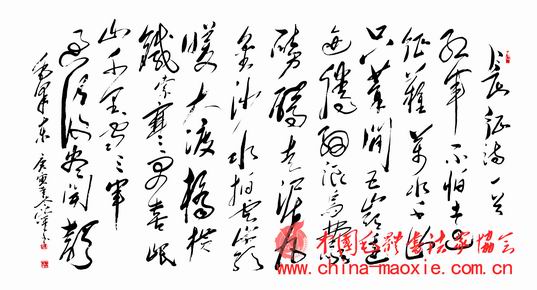 长征诗一首
红军不怕远
征难万水千山
只等闲五岭逶
迤腾细浪乌蒙
磅礴走泥丸
金沙水拍云崖
暖大渡桥横
铁索寒更喜岷
山千里雪三军
过后尽开颜
毛泽东 庚寅
中國毛體書法家協會
www.china-maoxie.com